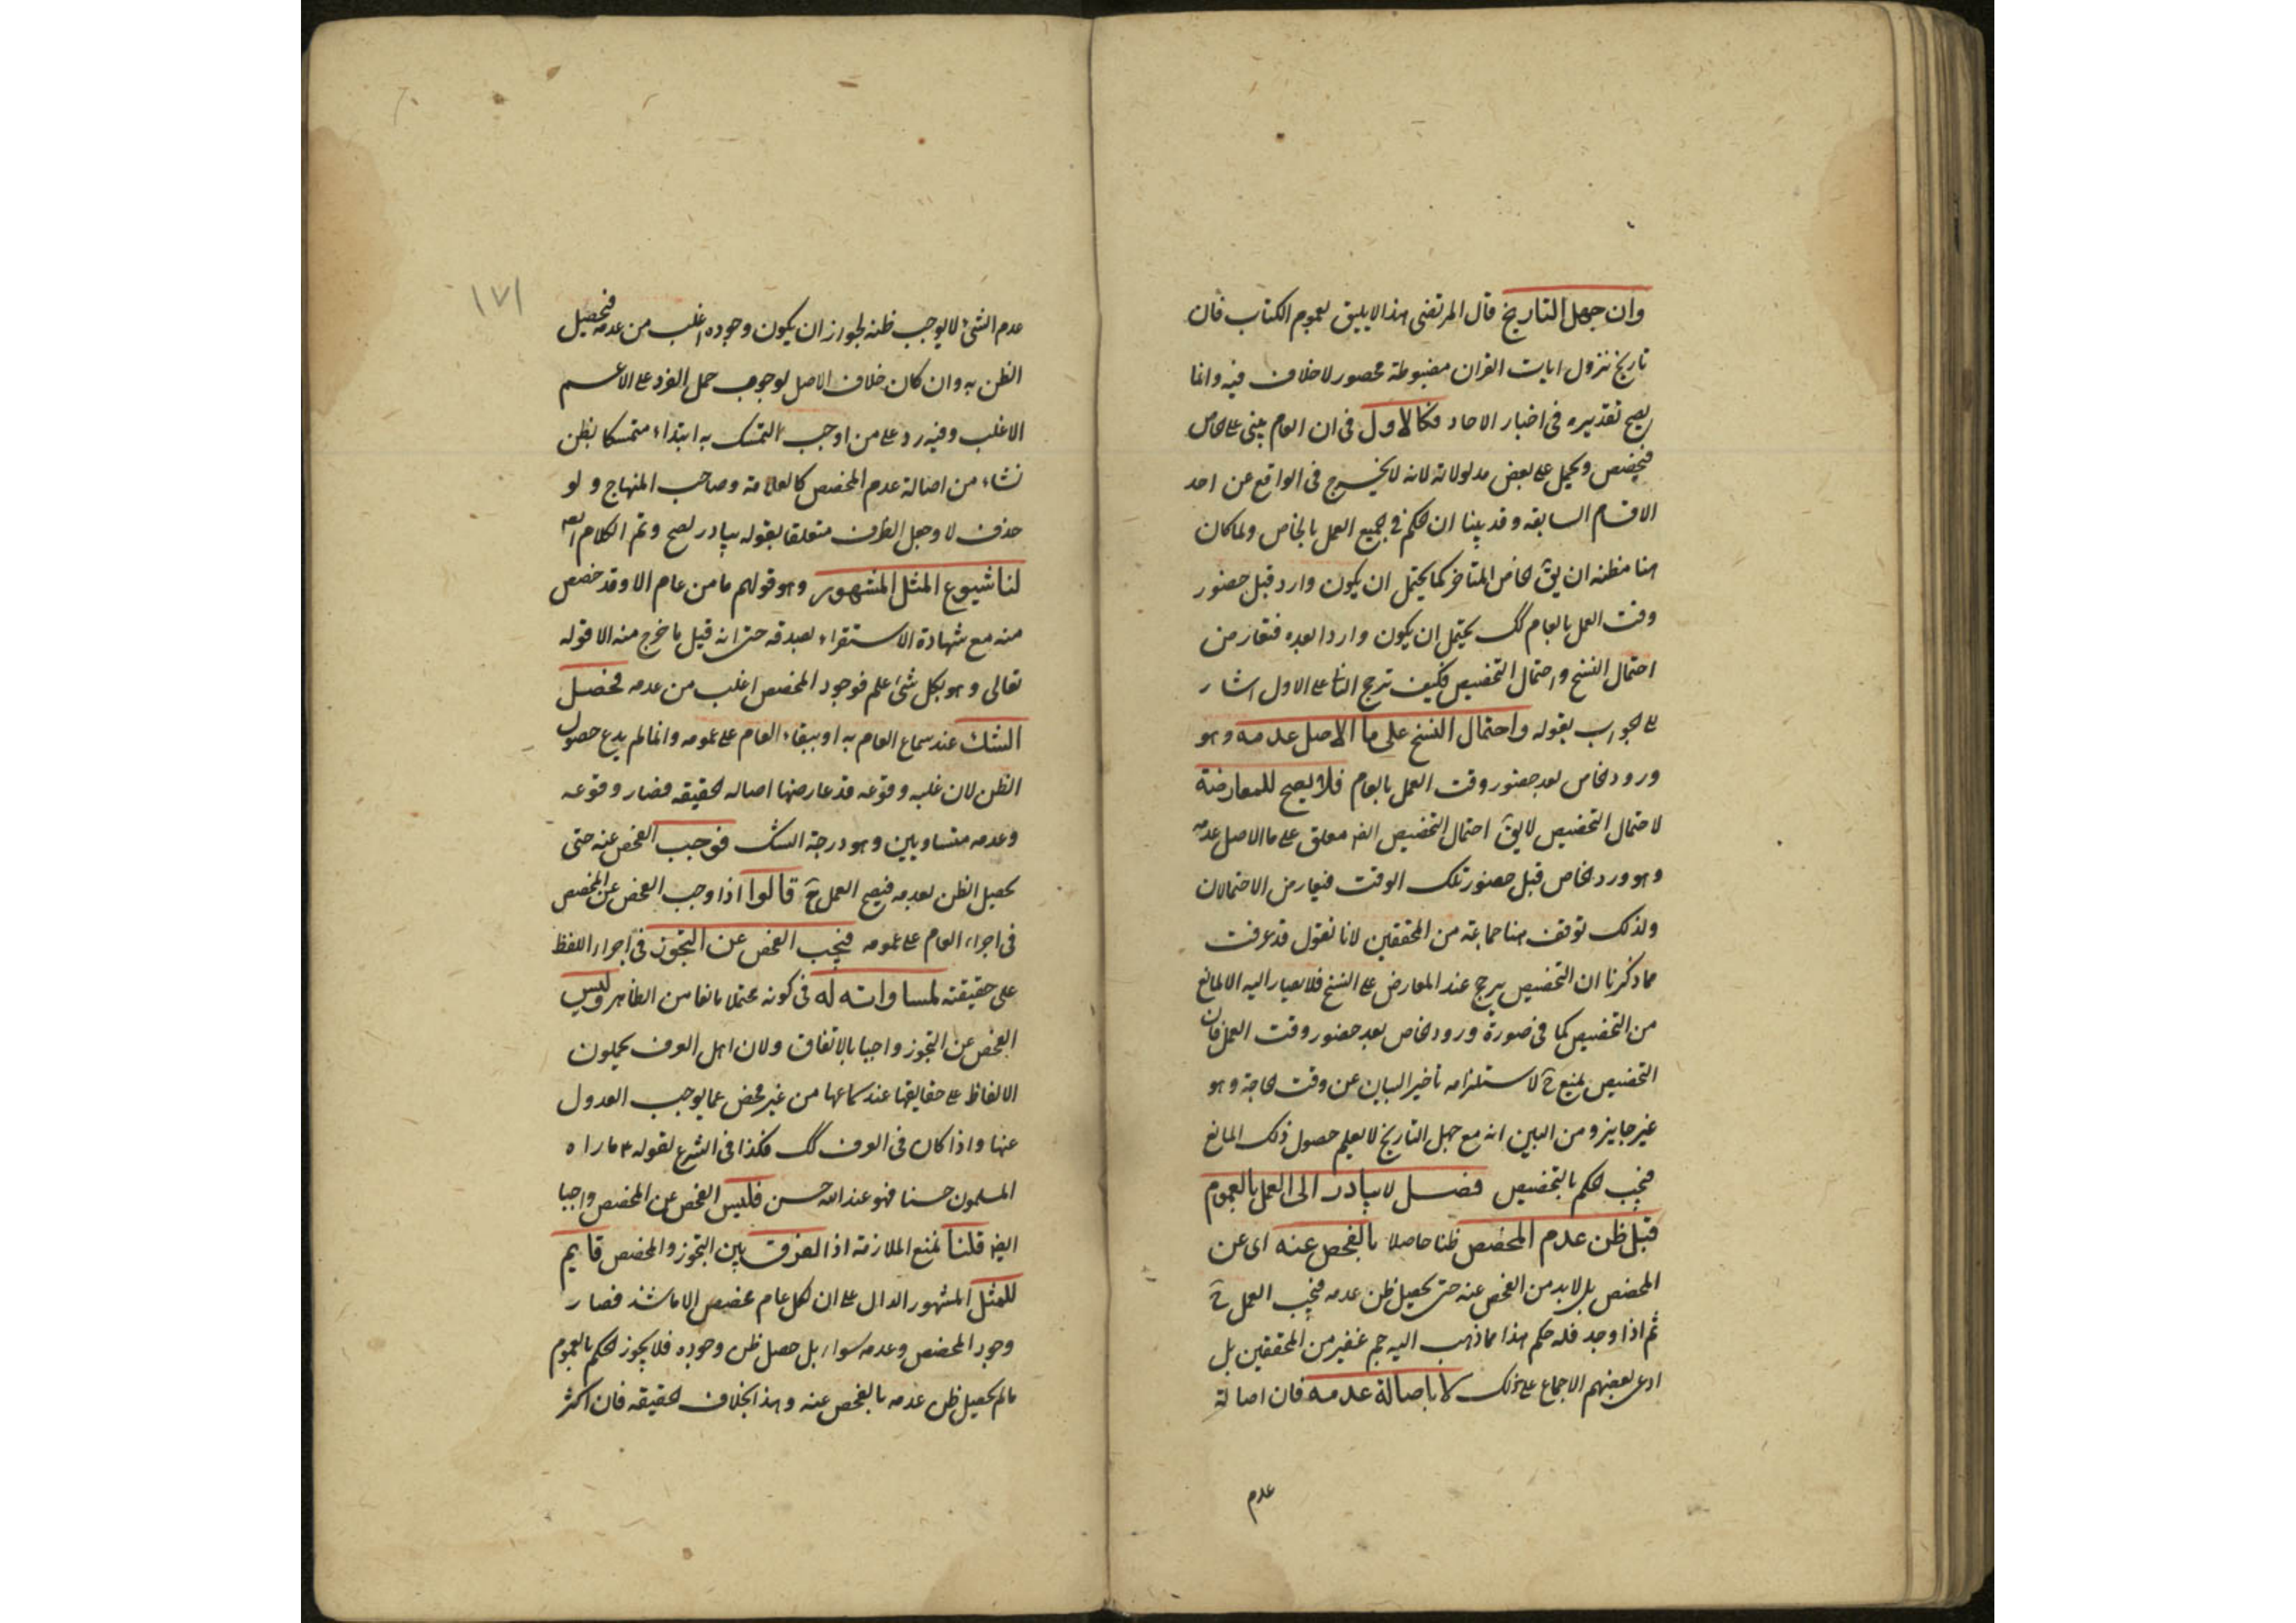 وان جهل التاريخ قال المرتضى هذا لا يليق بعموم الكتاب فان
تاريخ نزول ايات القران مضبوطة محصور لا خلاف فيه وانما
يصح تقديره فى اخبار الاحاد فكالاول فى ان العام يبنى على الخاص
فيخصص ويحمل على بعض مدلولاته لانه لا يخرج فى الواقع عن احد
الاقسام السابقه وقد بينا ان الحكم فى الجميع العمل بالخاص ولما كان
هنا مظنه ان يق الخاص المتاخر كما يحتمل ان يكون وارد قبل حضور
وقت العمل بالعام كك يحتمل ان يكون واردا بعده فتعارض
احتمال النسخ واحتمال التخصيص فكيف ترجح الثانى على الاول اشار
الى الجواب بقوله واحتمال النسخ على ما الاصل عدمه وهو
ورود الخاص بعد حضور وقت العمل بالعام فلا يصح للمعارضة
لاحتمال التخصيص لا يق احتمال التخصيص ايضا معلق على ما الاصل عدمه
وهو ورد الخاص قبل حضور تلك الوقت فيعارض الاحتمالان
ولذلك توقف هنا جماعة من المحققين لانا نقول قد عرفت
مما ذكرنا ان التخصيص يرجح عند المعارض على النسخ فلا يصار اليه الا لمانع
من التخصيص كما فى صورة ورود الخاص بعد حضور وقت العمل فان
التخصيص يمنع ح لاستلزامه تاخير البيان عن وقت الحاجة وهو
غير جايز ومن البين انه مع جهل التاريخ لا يعلم حصول ذلك المانع
فيجب الحكم بالتخصيص فصل لا يبادر الى العمل بالعموم
قبل ظن عدم المخصص ظنا حاصلا بالفحص عنه اى عن
المخصص بل لا بد من الفحص عنه حتى يحصل ظن عدمه فيجب العمل ح
ثم اذا وجد فله حكم هذا مما ذهب اليه جم غفير من المحققين بل
ادعى بعضهم الاجماع على ذلك لا باصالة عدمه فان اصالة
عدم
١٧١
عدم الشئ لا يوجب ظنه لجواز ان يكون وجوده اغلب من عدمه فيحصل
الظن به وان كان خلاف الاصل لوجوب حمل الفرد على الاعم
الاغلب وفيه رد على من اوجب التمسك به ابتداء متمسكا بظن
نشاء من اصالة عدم المخصص كالعلامة وصاحب المنهاج ولو
حذف لا وجعل الظرف متعلقا بقوله يبادر لصح وتم الكلام ايضا
لنا شيوع المثل المشهور وهو قولهم ما من عام الا وقد خصص
منه مع شهادة الاستقراء بصدقه حتى انه قيل ما خرج منه الا قوله
تعالى وهو بكل شئ عليم فوجود المخصص اغلب من عدمه فحصل
الشك عند سماع العام به او ببقاء العام على عمومه وانما لم يدع حصول
الظن لان غلبه وقوعه قد عارضها اصاله الحقيقه فصار وقوعه
وعدمه متساويين وهو درجة الشك فوجب الفحص عنه حتى
يحصل الظن بعدمه فيصح العمل ح قالوا اذا وجب الفحص عن المخصص
فى اجراء العام على عمومه فيجب الفحص عن التجوز فى اجراء اللفظ
على حقيقته لمساواته له فى كونه محتملا مانعا من الظاهر وليس
الفحص عن التجوز واجبا بالاتفاق ولان اهل العرف يحملون
الالفاظ على حقايقها عند سماعها من غير فحص عما يوجب العدول
عنها واذا كان فى العرف كك فكذا فى الشرع لقوله ٣ ما راه
المسلمون حسنا فهو عند الله حسن فليس الفحص عن المخصص واجبا
ايضا قلنا نمنع الملازمة اذ الفرق بين التجوز والمخصص قايم
للمثل المشهور الدال على ان كل عام مخصص الا ما شذ فصار
وجود المخصص وعدمه سواء بل حصل ظن وجوده فلا يجوز الحكم بالعموم
مالم يحصل ظن عدمه بالفحص عنه وهذا بخلاف الحقيقه فان اكثر